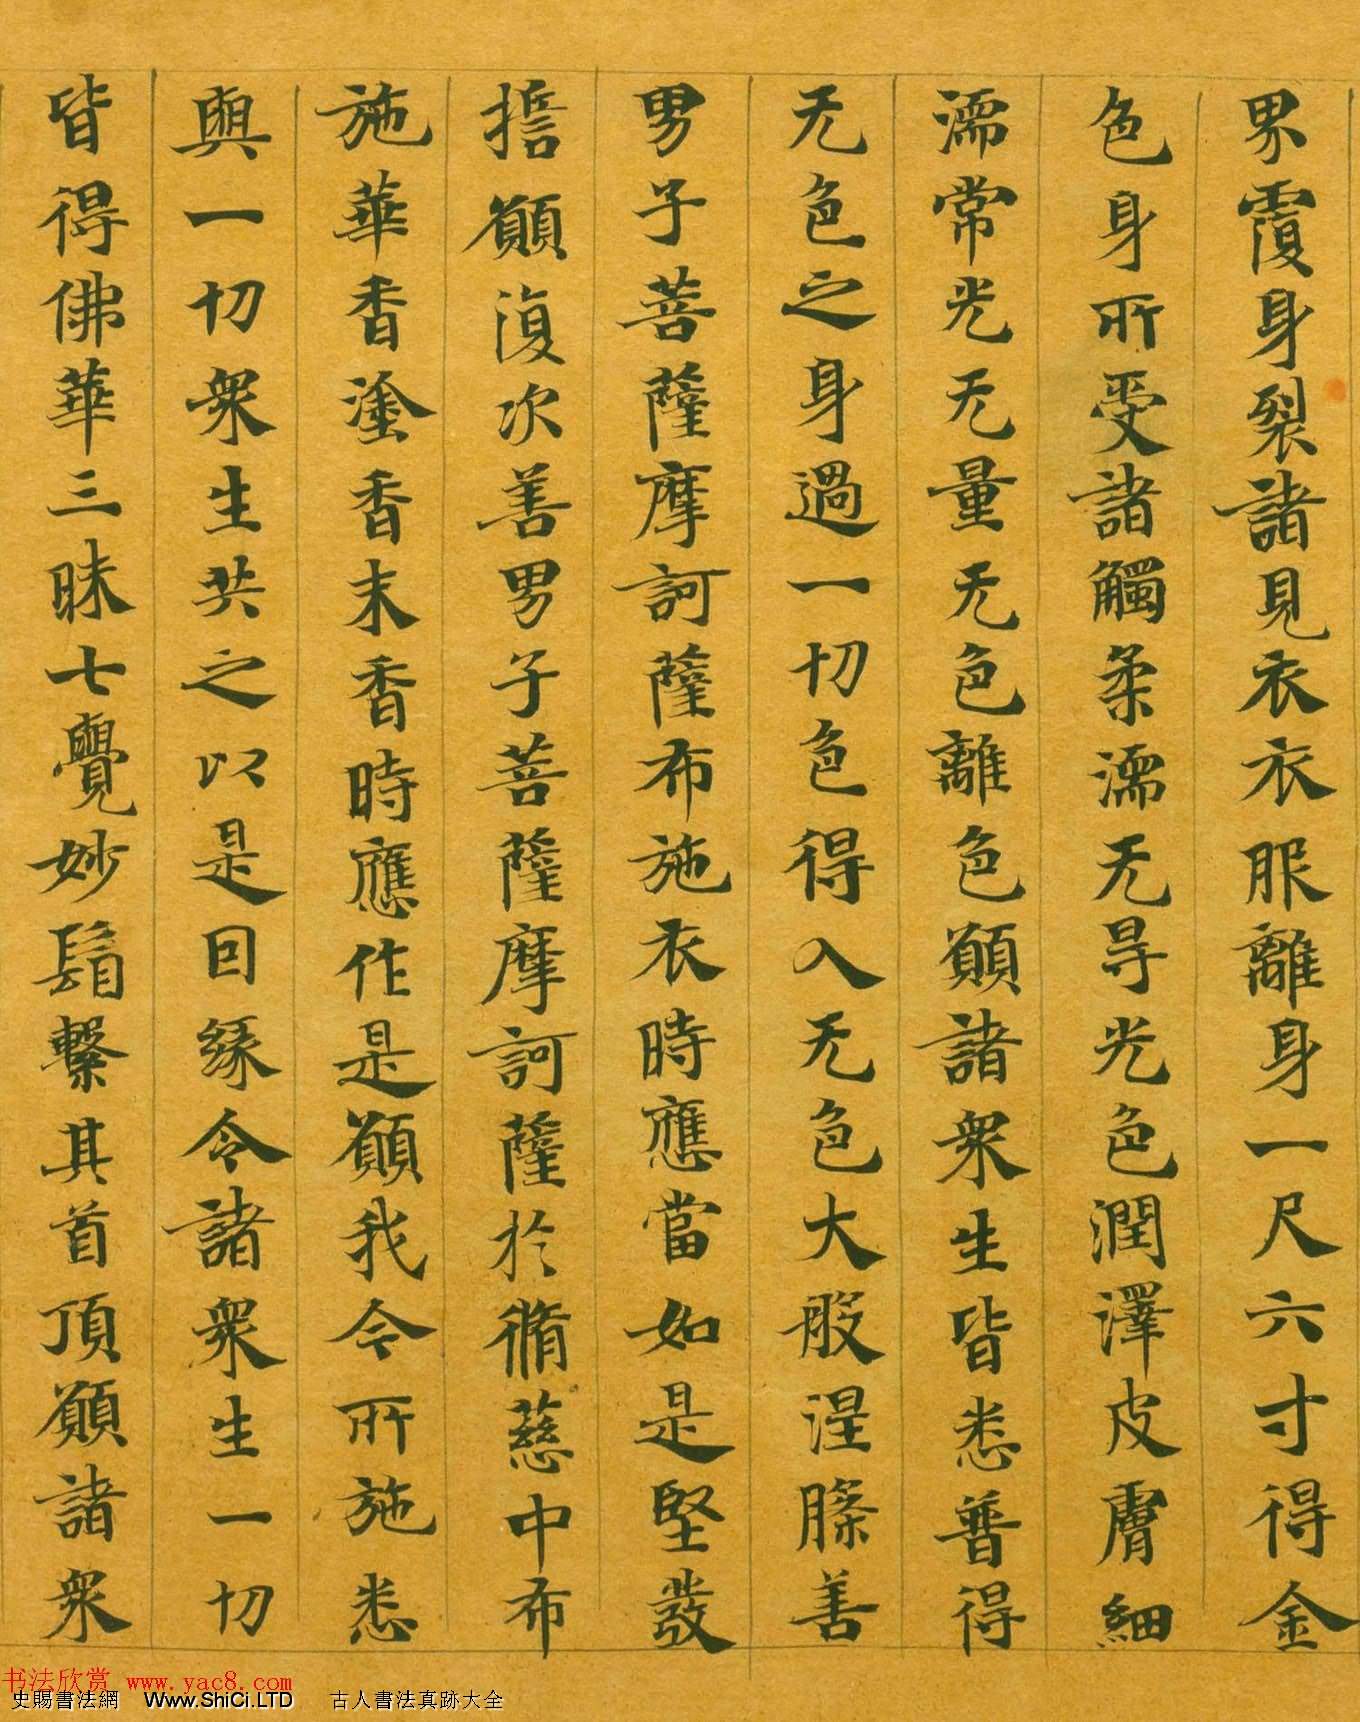 界覆身裂諸見衣衣服離身一尺六寸得金
色身所受諸觸柔濡无㝵光色潤澤皮膚細
濡常光无量无色離色願諸衆生皆悉普得
无色之身過一切色得入无色大般涅槃善
男子菩薩摩訶薩布施衣時應當如是堅發
擔願復次善男子菩薩摩訶薩於脩慈中布
施華香塗香末香時應作是願我今所施悉
與一切衆生共之以是因緣令諸衆生一切
皆得佛華三昧七覺妙鬘繫其首頂願諸衆
书法欣赏 www.yac8.com
史賜書法網 Www.ShiCi.LTD 古人書法真跡大全